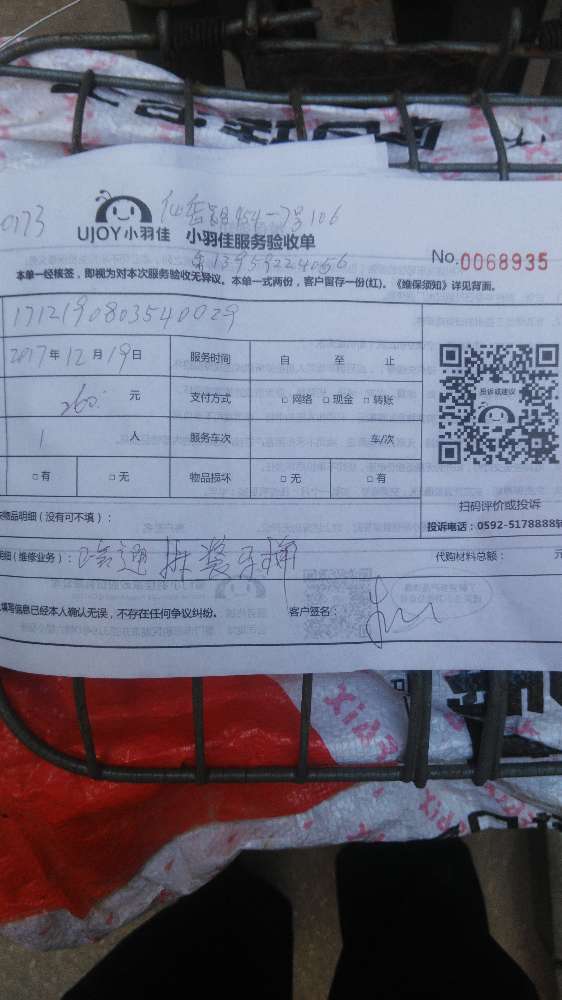 454-7号106
UJOY小羽佳 小羽佳服务验收单
13959224056
No.0068935
本单一经核签，即视为对本次服务验收无异议。本单一式两份，客户留存一份(红)。《维保须知》详见背面。
1712190803540029
2017年12月19日 服务时间 自 至 止
260 元 支付方式 □ 网络 □ 现金 □ 转账
投诉或建议
1 人 服务车次 车/次
□ 有 □ 无 物品损坏 □ 无 □ 有
扫码评价或投诉
物品明细（没有可不填）：
投诉电话：0592-5178888转
明细（维修业务）： 代购材料总额： 元
填写信息已经本人确认无误，不存在任何争议纠纷。 客户签名：